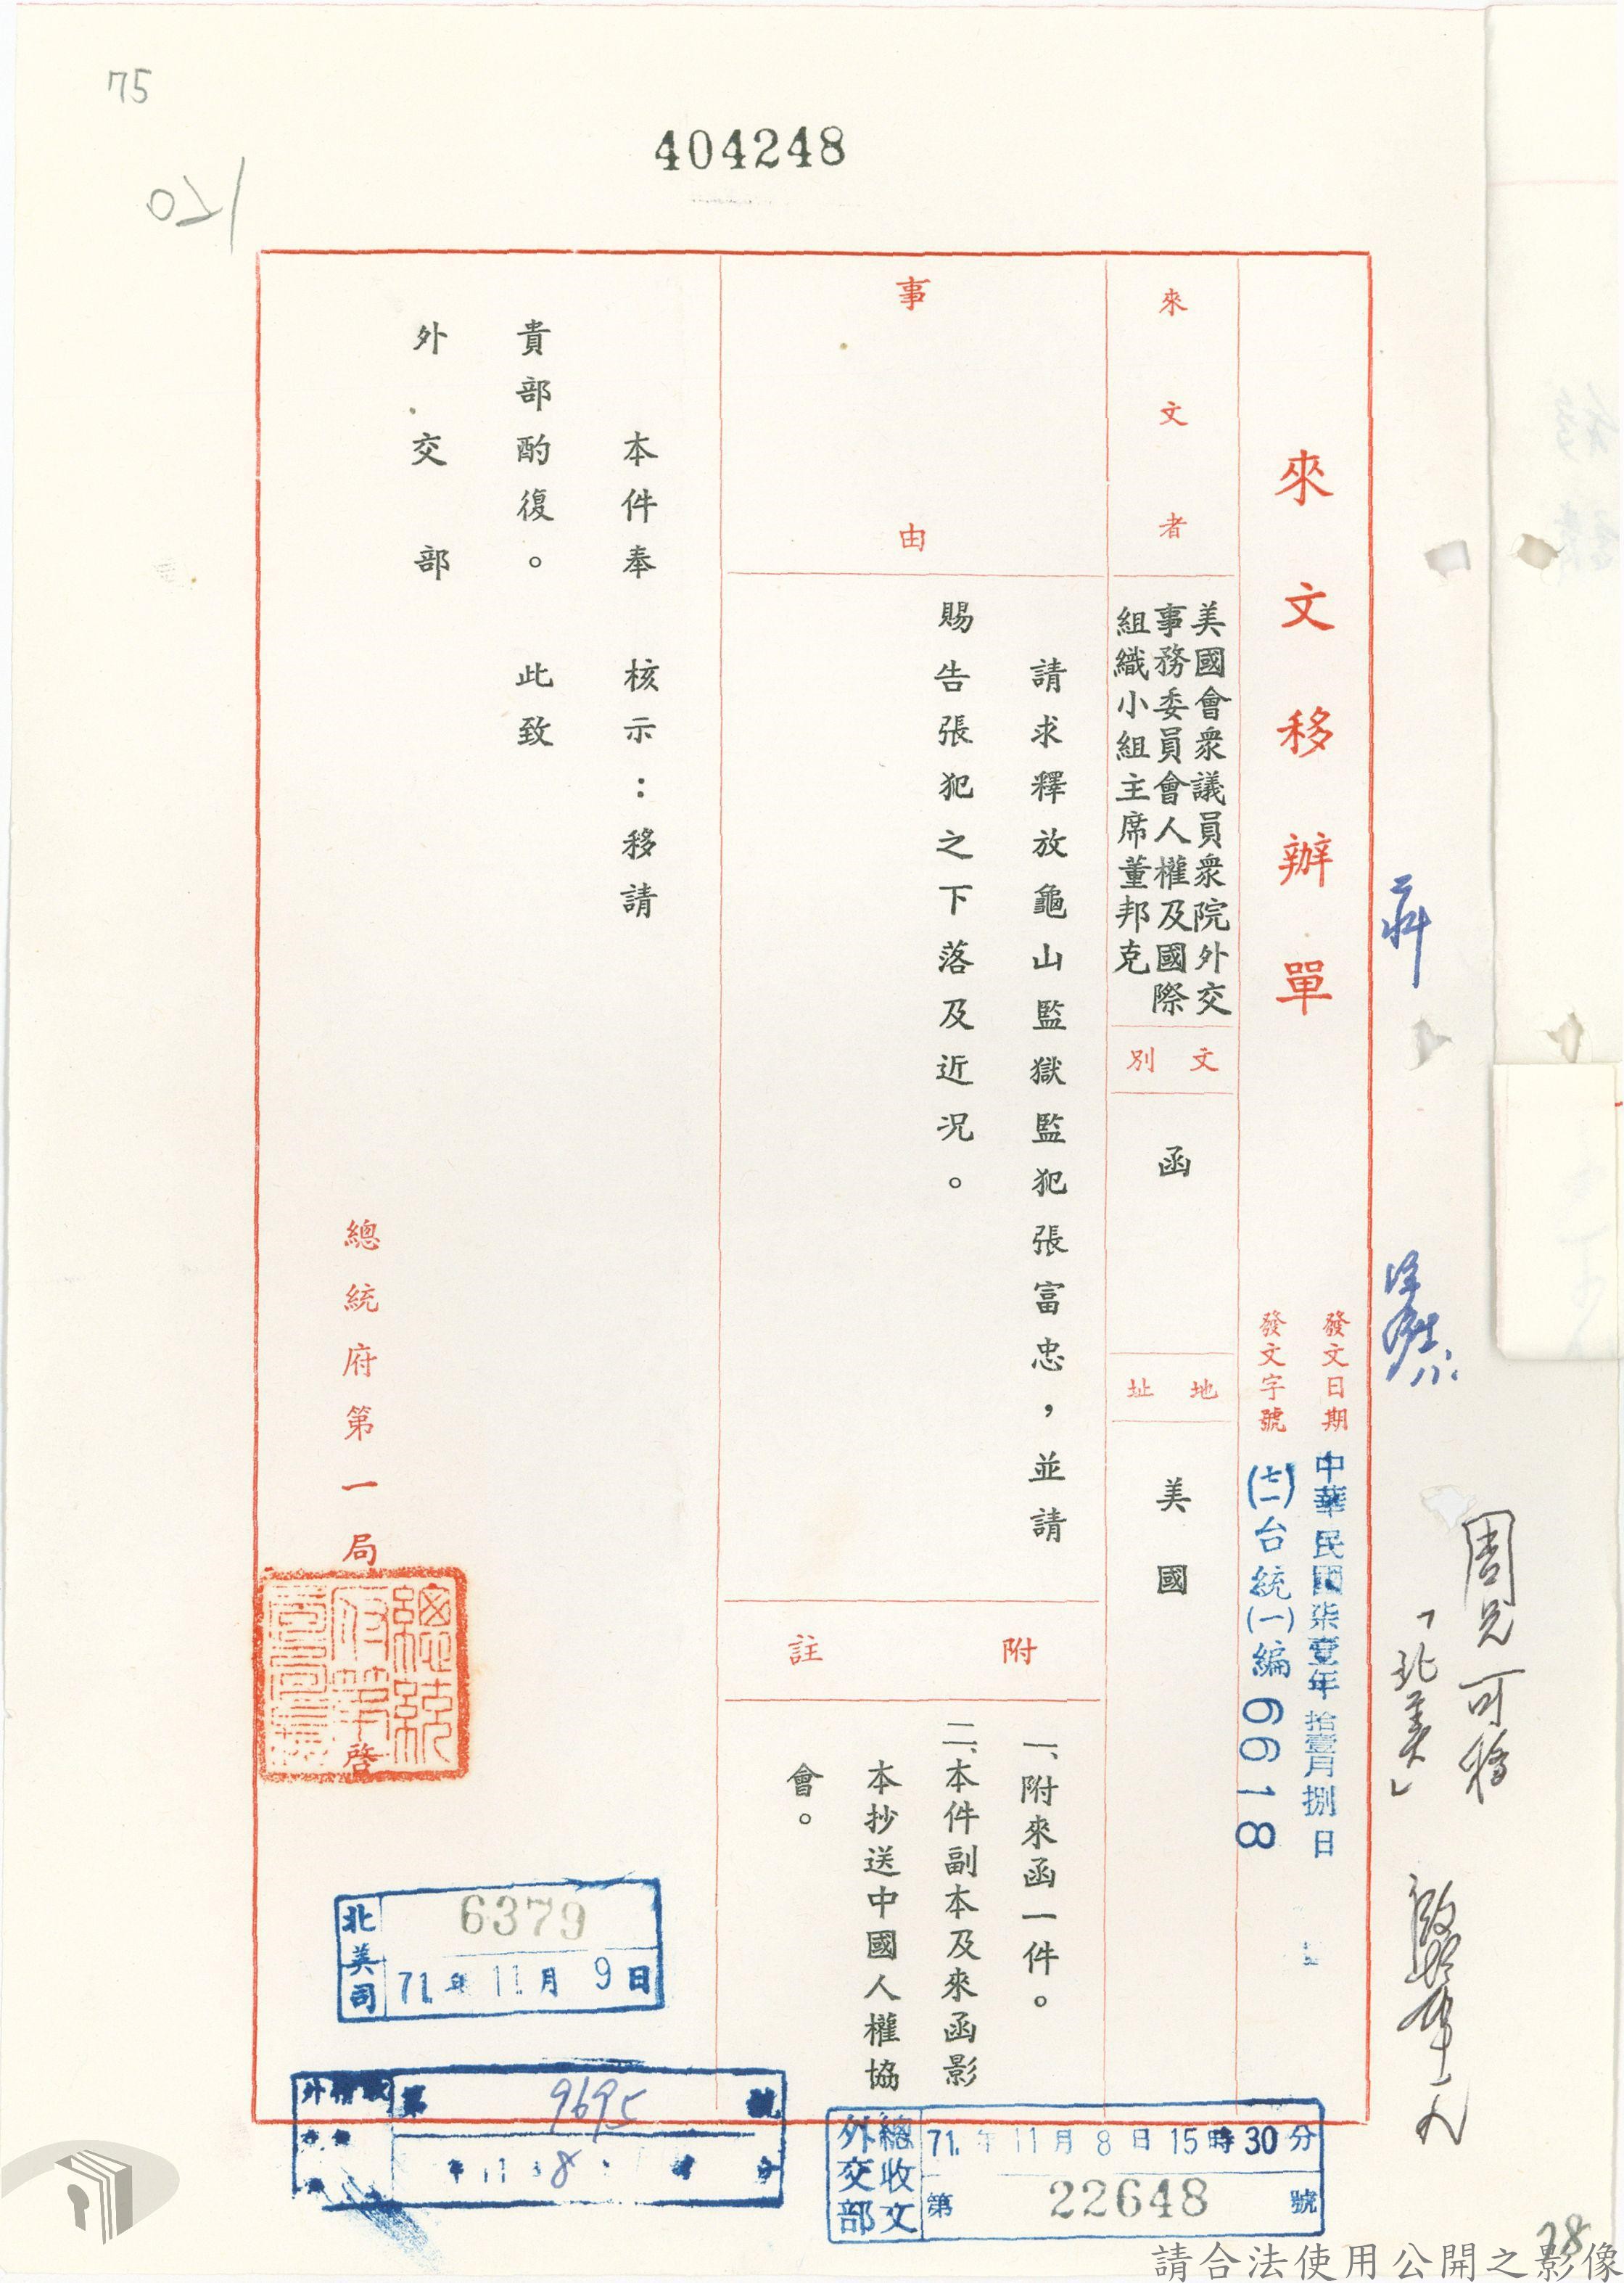 75
404248
來文移辦單
發文日期
中華民國柒壹年拾壹月捌日
發文字號
(七一)台統(一)編6618
號
來文者
美國會衆議員衆院外交
事務委員會人權及國際
組織小組主席董邦克
文別
函
地址
美國
事由
請求釋放龜山監獄監犯張富忠，並請
賜告張犯之下落及近況。
附註
一、附來函一件。
二、本件副本及來函影
本抄送中國人權協
會。
本件奉　核示：移請
貴部酌復。　此致
外交部
總統府第一局
啓
北美司
6379
71年11月9日
第9695號
外交部
總收文
71年11月8日15時30分
第22648號
「北美」
78
請合法使用公開之影像